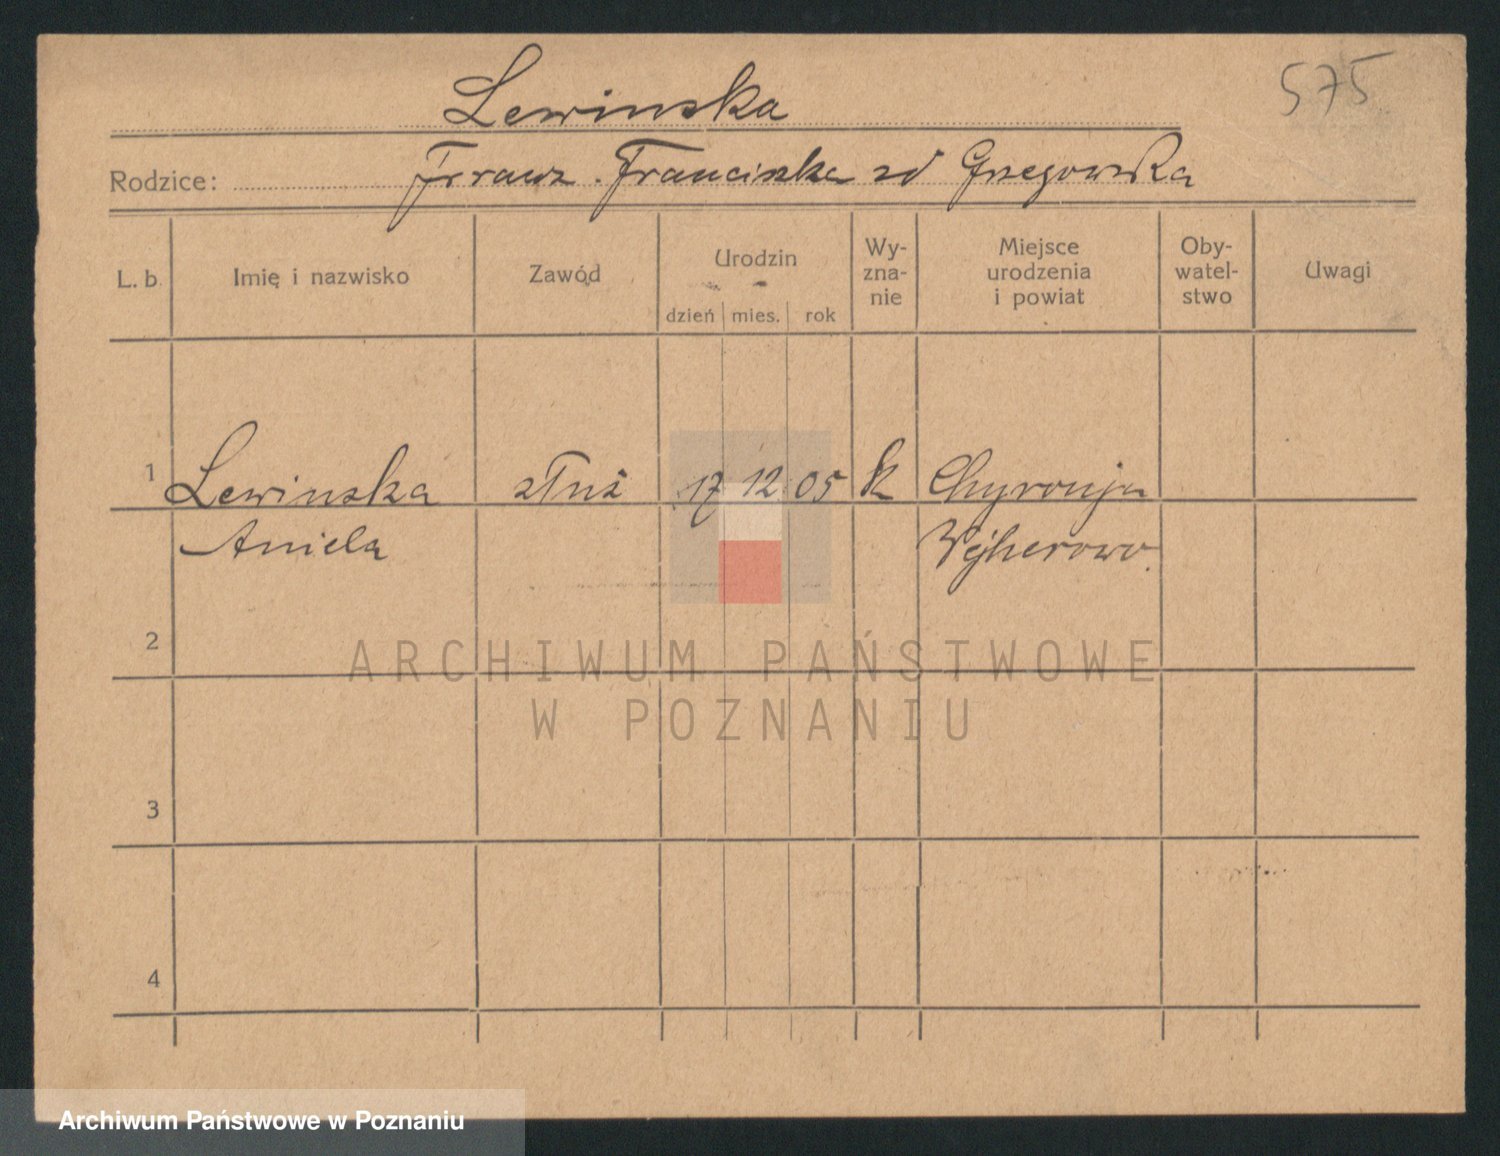 575
Lewinska
Rodzice: Franz. Franciszka zd Grzegowska
L. b.
Imię i nazwisko
Zawód
Urodzin
dzień mies. rok
Wy-
zna-
nie
Miejsce
urodzenia
i powiat
Oby-
watel-
stwo
Uwagi
1 Lewinska służ 17 12 05 k
Aniela Wejherowo.
2
3
4
ARCHIWUM PAŃSTWOWE
W POZNANIU
Archiwum Państwowe w Poznaniu